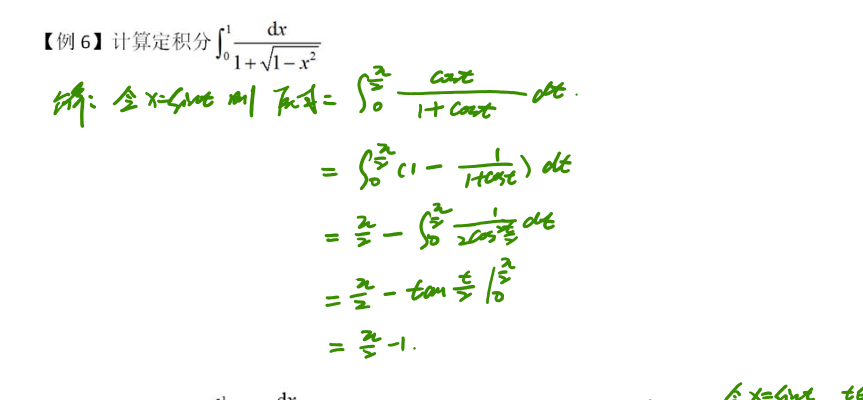 【例 6】计算定积分 ∫₀¹ dx/(1+√(1−x²))
解: 令 x=sint 则 原式 = ∫₀^(π/2) cost/(1+cost) dt.
= ∫₀^(π/2) (1 − 1/(1+cost)) dt
= π/2 − ∫₀^(π/2) 1/(2cos²(t/2)) dt
= π/2 − tan(t/2) |₀^(π/2)
= π/2 −1.
dx
令 x=sint